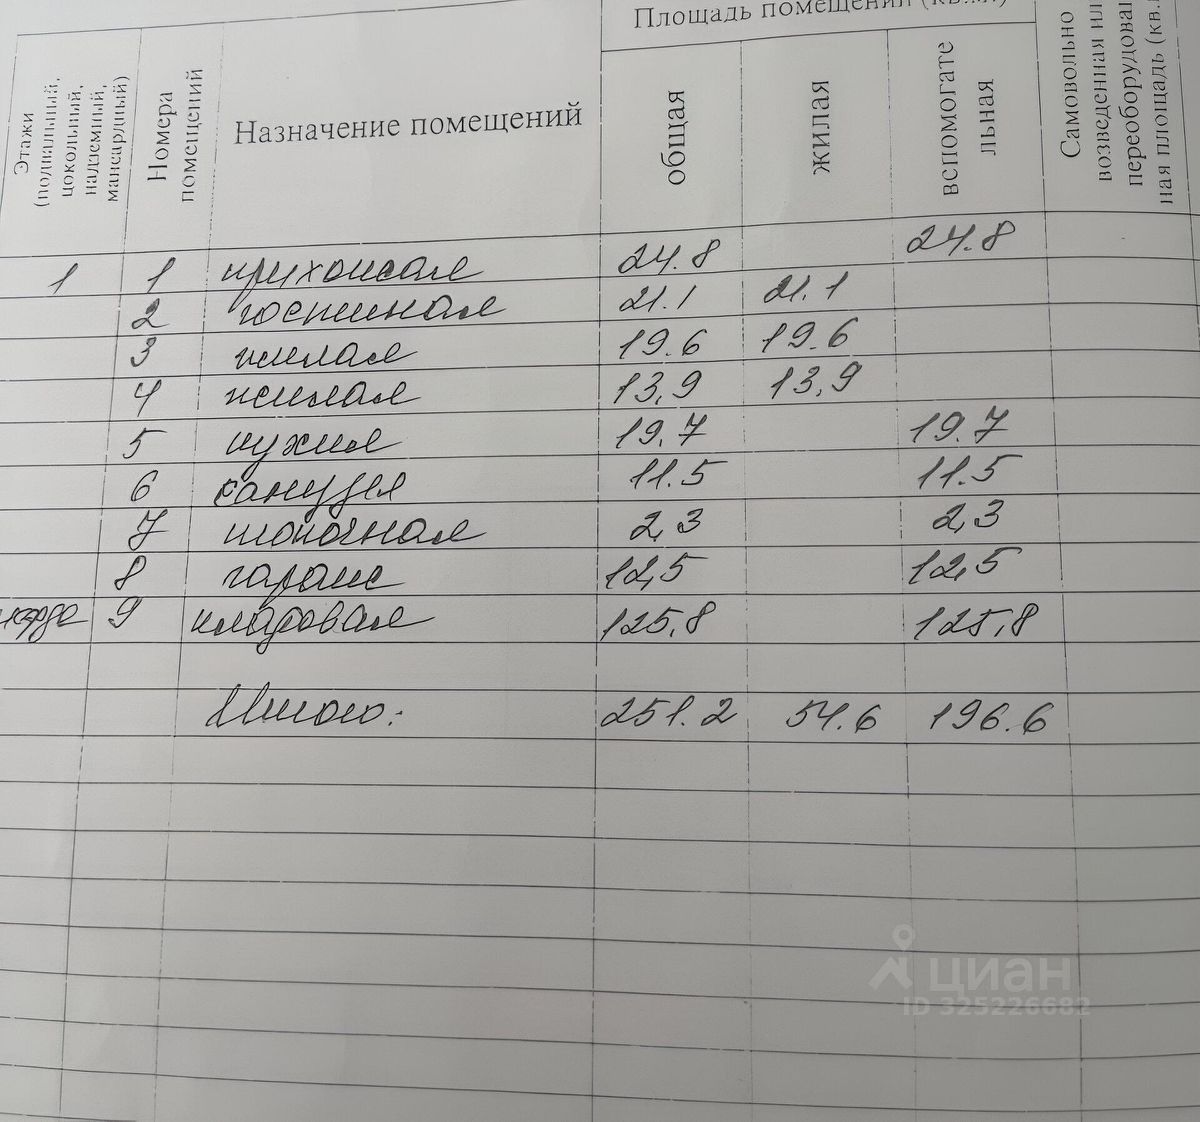 Площадь помещений (кв.м.)
Этажи (подвальный, цокольный, надземный, мансардный)
Номера помещений
Назначение помещений
общая
жилая
вспомогате льная
Самовольно возведенная ил переоборудован ная площадь (кв.м
1 1 прихожая 24.8 24.8
2 гостиная 21.1 21.1
3 жилая 19.6 19.6
4 жилая 13,9 13,9
5 кухня 19.7 19.7
6 санузел 11.5 11.5
7 топочная 2,3 2,3
8 гараж 12,5 12,5
9 кладовая 125,8 125,8
Итого: 251.2 54.6 196.6
циан
ID 325226682